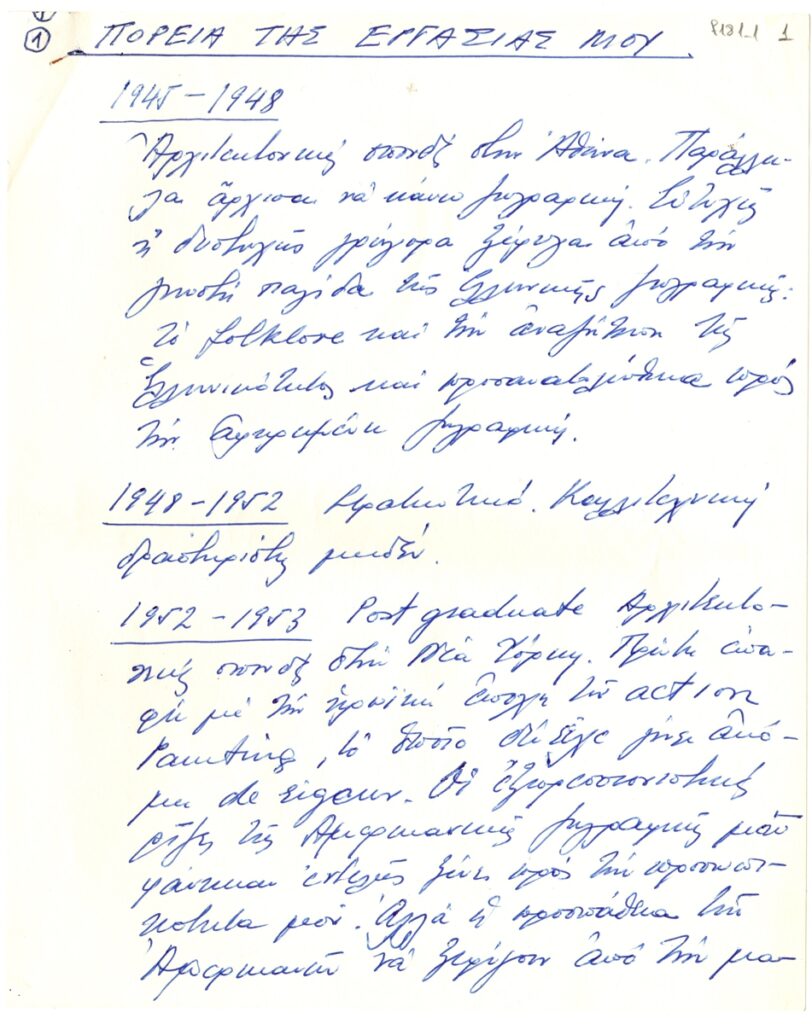 ① ΠΟΡΕΙΑ ΤΗΣ ΕΡΓΑΣΙΑΣ ΜΟΥ 1
1945 – 1948
Ἀρχιτεκτονική σπουδή στήν Ἀθήνα. Παράλλη-
λα ἄρχισα νά κάνω ζωγραφική. Εὐτυχῶς
ἤ δυστυχῶς γρήγορα ξέφυγα ἀπό τήν
γνωστή παγίδα τῆς Ἑλληνικῆς ζωγραφικῆς:
τό folklore καί τήν ἀναζήτηση τῆς
Ἑλληνικότητος καί προσανατολίσθηκα πρός
τήν ἀφηρημένη ζωγραφική.
1948 – 1952 Στρατιωτικό. Καλλιτεχνική
δραστηριότης μηδέν.
1952 – 1953 Post graduate Ἀρχιτεκτο-
νικής σπουδή στήν Νέα Υόρκη. Πρώτη ἐπα-
φή μέ τήν ἡρωϊκή ἐποχή τῆς action
Painting, τό ὁποῖο δέν εἶχε γίνει ἀκό-
μη de rigeur. Οἱ ἐξπρεσσιονιστικές
ρίζες τῆς Ἀμερικανικῆς ζωγραφικῆς μοῦ
φάνηκαν ἐντελῶς ξένες πρός τήν προσωπι-
κότητα μου. Ἀλλά ἡ προσπάθεια τῶν
Ἀμερικανῶν νά ξεφύγουν ἀπό τήν μα-